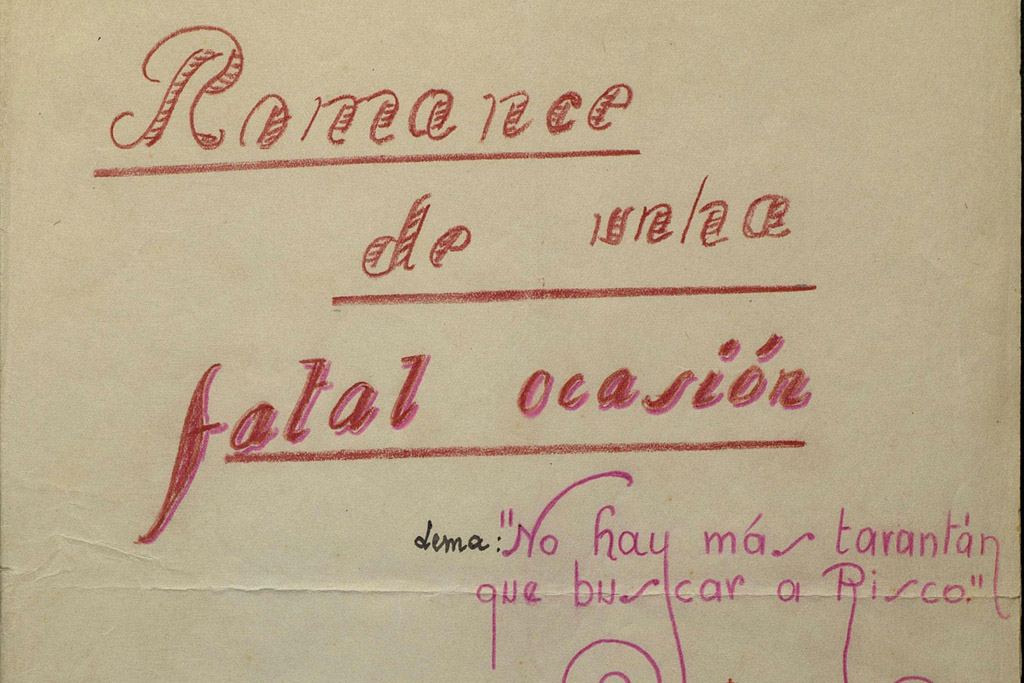 Romance
de una
fatal ocasión
Lema: "No hay más tarantán
que buscar a Risco."